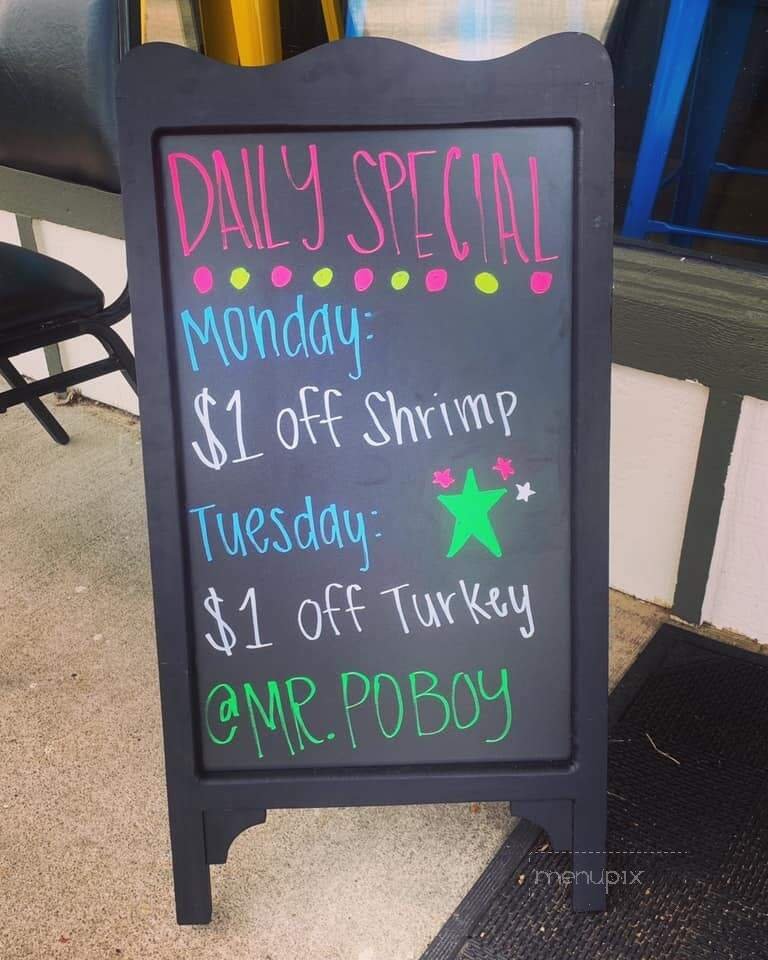 DAILY SPECIAL
Monday:
$1 off Shrimp
Tuesday:
$1 off Turkey
@MR. POBOY
menupix